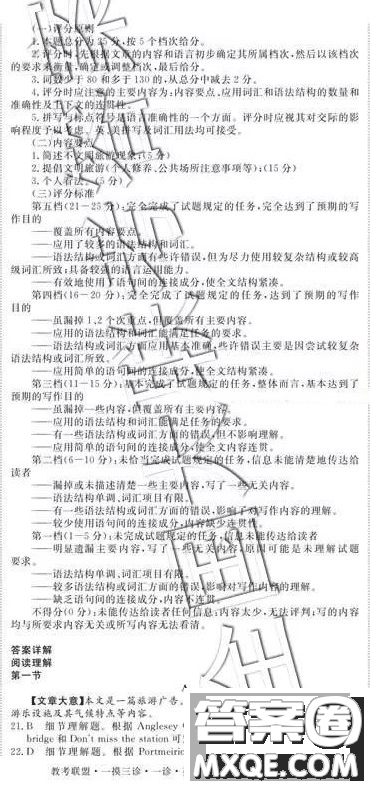 (一)评分原则
1.本题总分为25分,按5个档次给分。
2.评分时,先根据文章的内容和语言初步确定其所属档次,然后以该档次
的要求来衡量,确定或调整档次,最后给分。
3.词数少于80和多于130的,从总分中减去2分。
4.评分时应注意的主要内容为:内容要点、应用词汇和语法结构的数量和
准确性及上下文的连贯性。
5.拼写与标点符号是语言准确性的一个方面。评分时应视其对交际的影
响程度予以考虑。英、美拼写及词汇用法均可接受。
(二)内容要点
1.简述不文明旅游现象;(5分)
2.提倡文明旅游(个人修养、公共场所注意事项等);(15分)
3.个人看法。(5分)
(三)评分标准
第五档(21-25分):完全完成了试题规定的任务,完全达到了预期的写
作目的
——覆盖所有内容要点。
——应用了较多的语法结构和词汇。
——语法结构或词汇方面有些许错误,但为尽力使用较复杂结构或较高
级词汇所致;具备较强的语言运用能力。
——有效地使用了语句间的连接成分,使全文结构紧凑。
第四档(16-20分):完全完成了试题规定的任务,达到了预期的写作
目的
——虽漏掉1,2个次重点,但覆盖所有主要内容。
——应用的语法结构和词汇能满足任务的要求。
——语法结构或词汇方面应用基本准确,些许错误主要是因尝试较复杂
语法结构或词汇所致。
——应用简单的语句间的连接成分,使全文结构紧凑。
第三档(11-15分):基本完成了试题规定的任务,整体而言,基本达到了
预期的写作目的
——虽漏掉一些内容,但覆盖所有主要内容。
——应用的语法结构和词汇能满足任务的要求。
——有一些语法结构或词汇方面的错误,但不影响理解。
——应用简单的语句间的连接成分,使全文内容连贯。
第二档(6-10分):未恰当完成试题规定的任务,信息未能清楚地传达给
读者
——漏掉或未描述清楚一些主要内容,写了一些无关内容。
——语法结构单调、词汇项目有限。
——有一些语法结构或词汇方面的错误,影响了对写作内容的理解。
——较少使用语句间的连接成分,内容缺少连贯性。
第一档(1-5分):未完成试题规定的任务,信息未能传达给读者
——明显遗漏主要内容,写了一些无关内容,原因可能是未理解试题
要求。
——语法结构单调、词汇项目有限。
——较多语法结构或词汇方面的错误,影响对写作内容的理解。
——缺乏语句间的连接成分,内容不连贯。
不得分(0分):未能传达给读者任何信息:内容太少,无法评判;写的内容
均与所要求内容无关或所写内容无法看清。
答案详解
阅读理解
第一节
A
【文章大意】本文是一篇旅游广告。
游乐设施及其气候特点等内容。
21.B 细节理解题。根据 Anglesey
bridge 和 Don't miss the station 可
22.D 细节理解题。根据 Portmeiric
教考联盟·一摸三诊·一诊·
答案圈
MXQE.COM